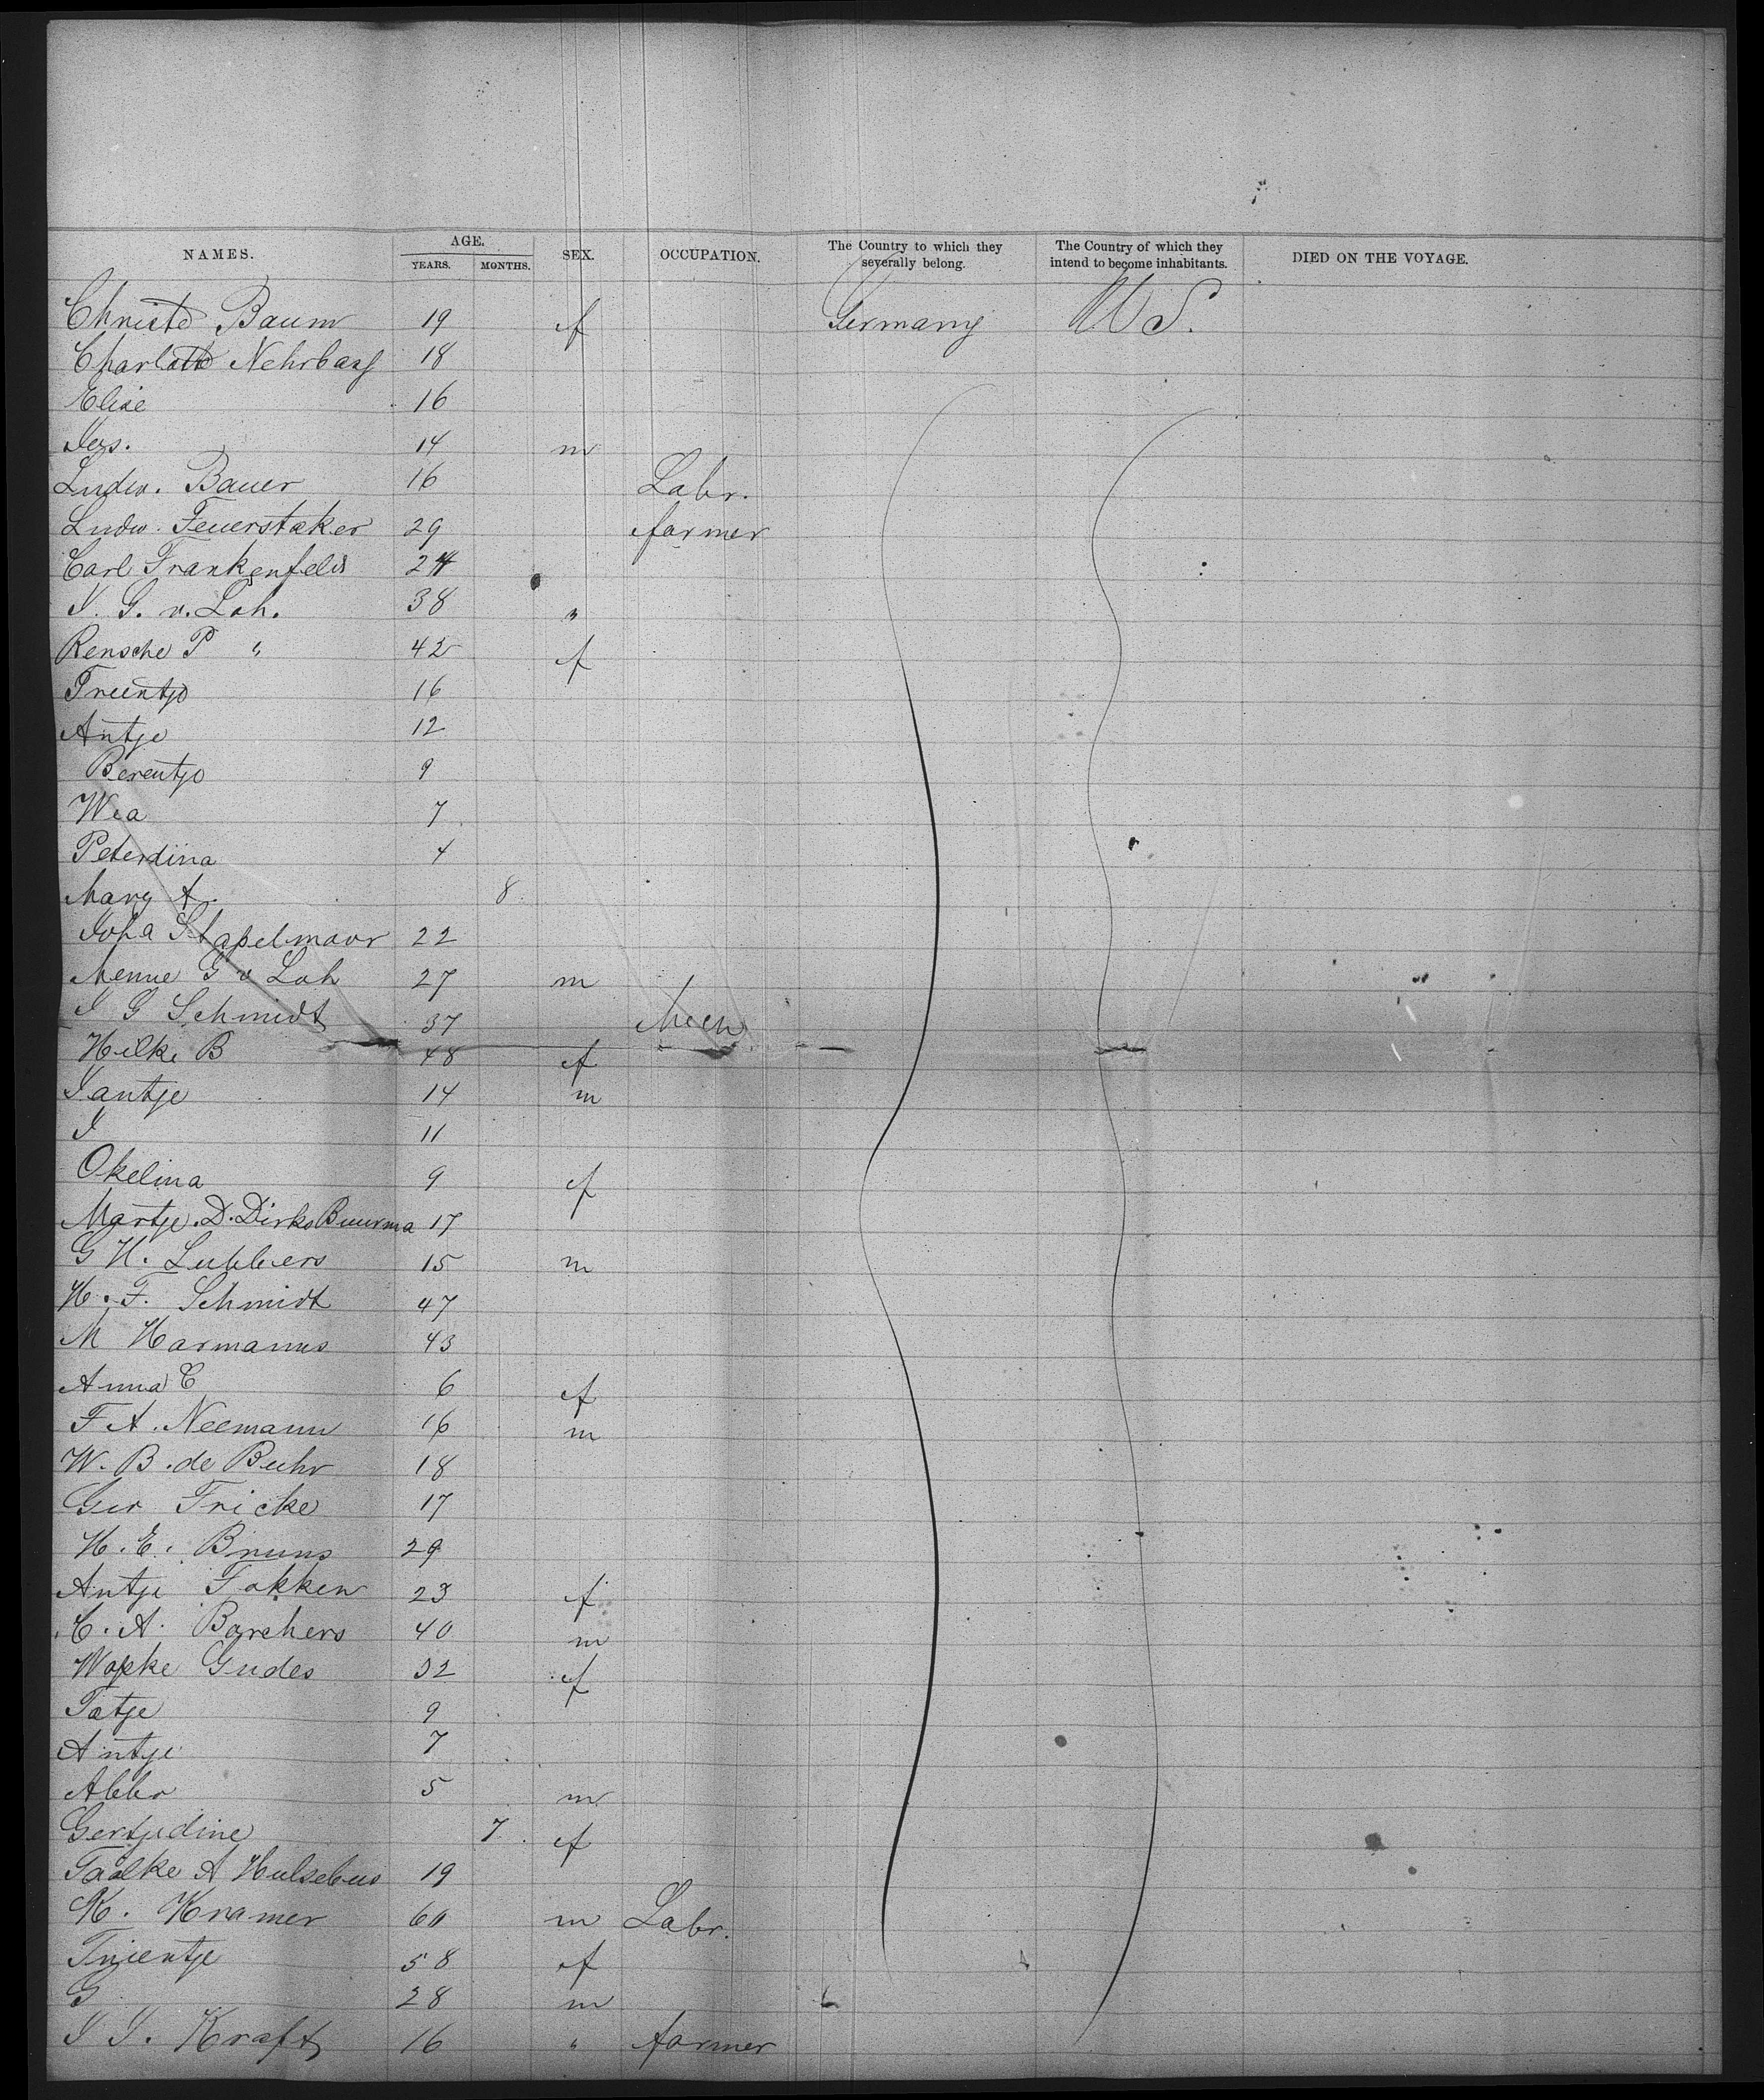 NAMES. AGE. YEARS. MONTHS. SEX. OCCUPATION. The Country to which they severally belong. The Country of which they intend to become inhabitants. DIED ON THE VOYAGE.
Christe Baum 19 f Germany U S.
Charlotte Nehrbass 18
Elise 16
Jos. 14 m
Ludw. Bauer 16 Labr.
Ludw. Feuerstaker 29 farmer
Carl Frankenfeld 24
J. G. v. Loh. 38 "
Rensche P " 42 f
Trientje 16
Antje 12
Berentje 9
Wea 7
Peterdina 4
Marg A. 8
Joha Stapelmoor 22
Menne G v Loh 27 m
J G Schmidt 37 Mech
Hilke B 48 f
Jantje 14 m
J 11
Okelina 9 f
Martje. D. Dirks Buurma 17
G H. Lubbers 15 m
H. F. Schmidt 47
M Harmanns 43
Anna C 6 f
F A. Neemann 16 m
W. B. de Buhr 18
Ger Fricke 17
H. E. Bruns 29
Antje Fokken 23 f
C. A. Borchers 40 m
Wopke Gudes 32 f
Tatje 9
Antje 7
Abbo 5 m
Gertjedine 7 f
Taalke A Hulsebus 19
K. Kramer 60 m Labr.
Trientje 58 f
G 28 m
J J. Kraft 16 " farmer